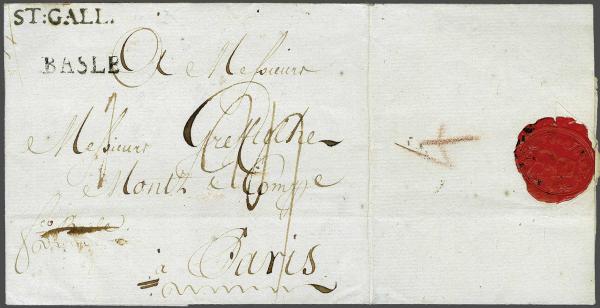 ST: GALL.
BASLE
A Messieurs
Messieurs Greffulhe
Montz & Compe
à Paris
4